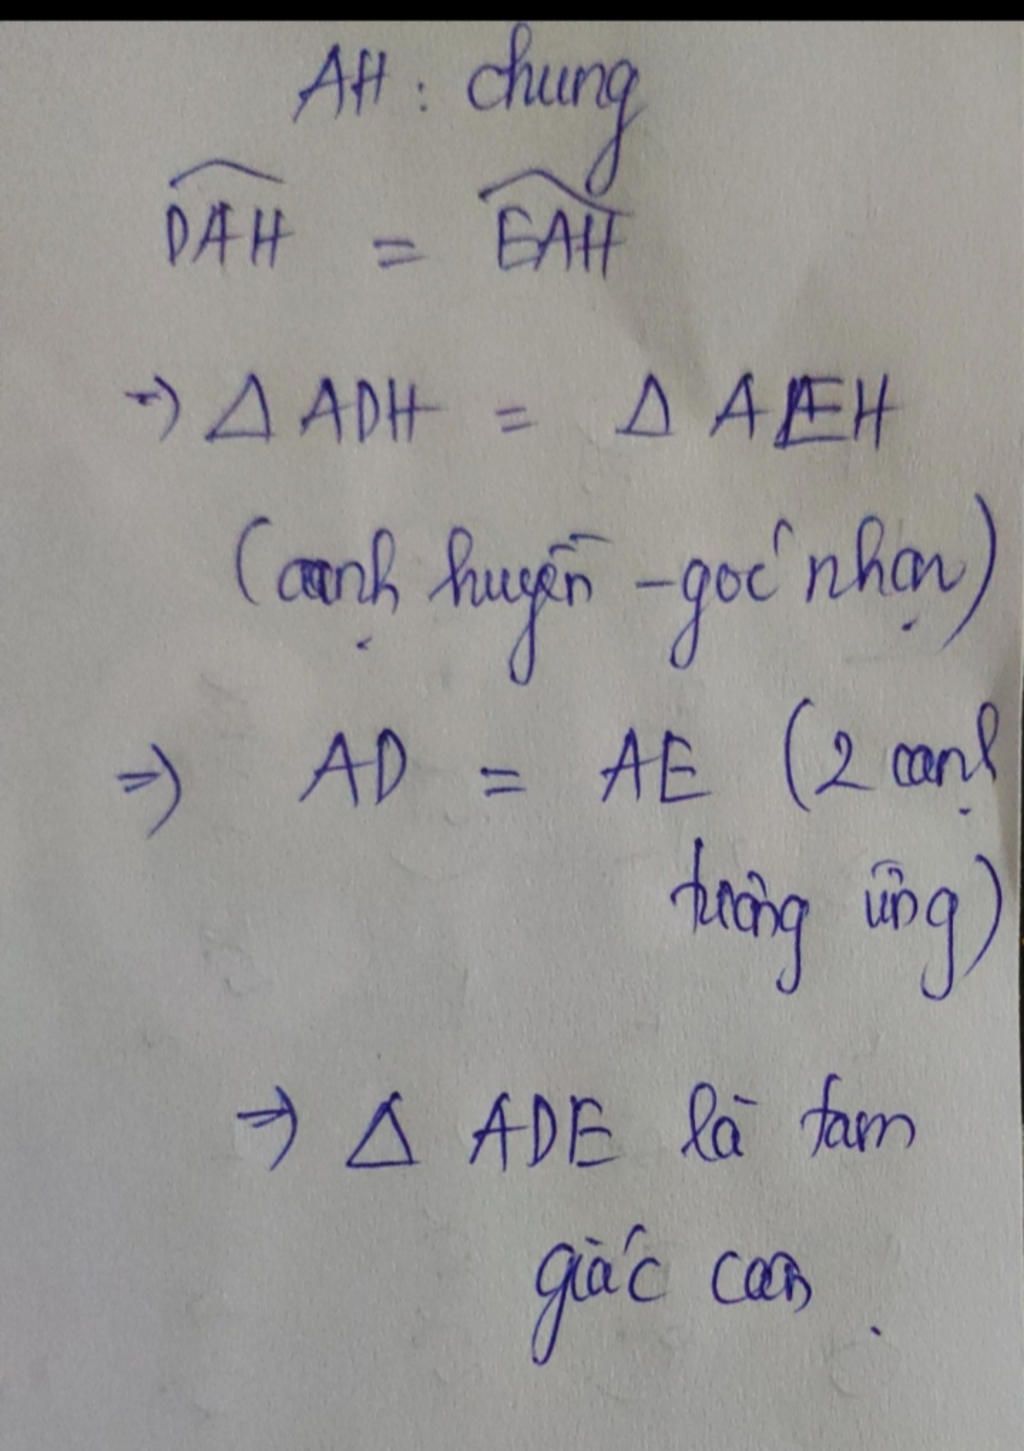 AH : chung
∠DAH = ∠EAH
⇒ Δ ADH = Δ AEH
(cạnh huyền - góc nhọn)
⇒ AD = AE (2 cạnh
tương ứng)
⇒ Δ ADE là tam
giác cân.